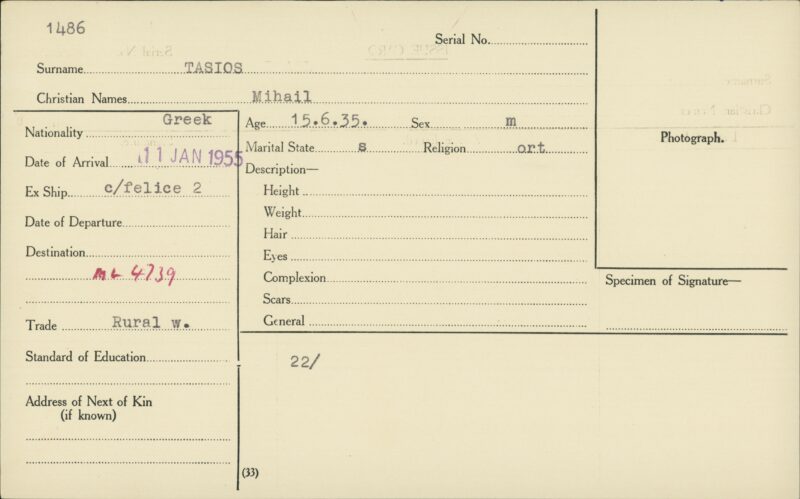 1486
Serial No.
Surname TASIOS
Christian Names Mihail
Nationality Greek
Date of Arrival 11 JAN 1955
Ex Ship c/felice 2
Date of Departure
Destination
ML 4739
Trade Rural w.
Standard of Education
Address of Next of Kin
(if known)
Age 15.6.35. Sex m
Marital State s Religion ort
Description—
Height
Weight
Hair
Eyes
Complexion
Scars
General
22/
(33)
Photograph.
Specimen of Signature—